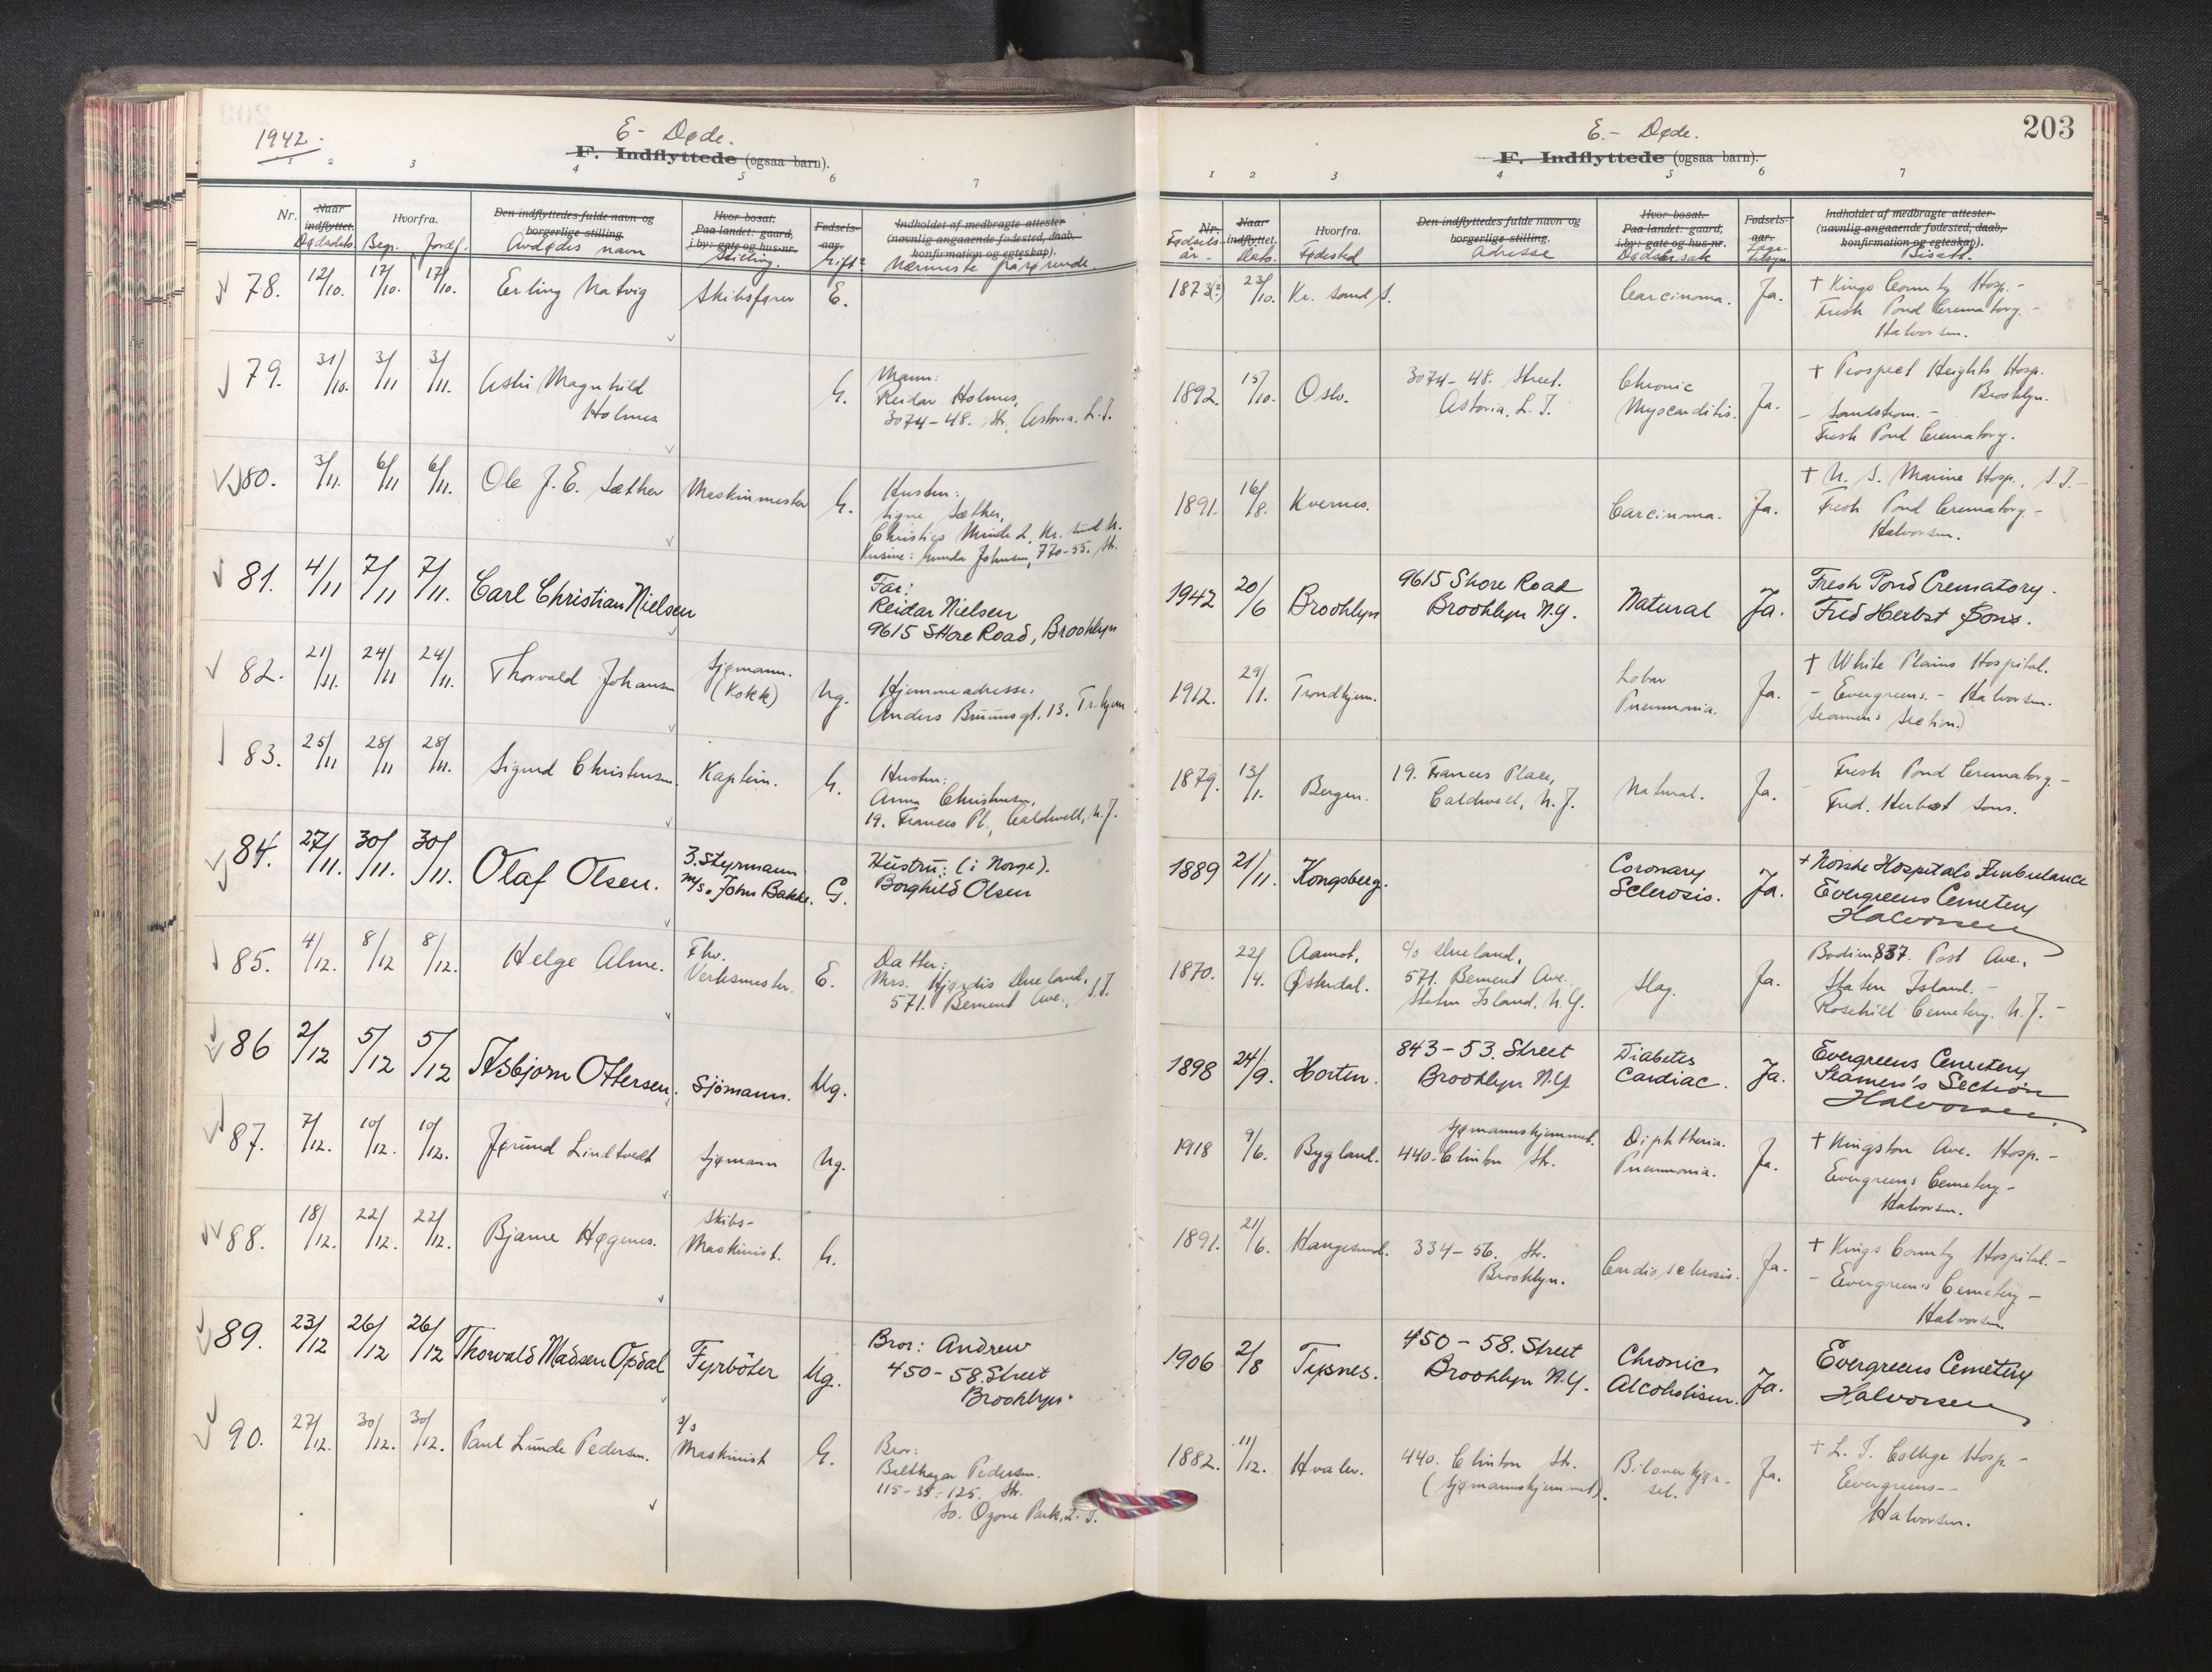 1942.
E- Døde.
F. Indflyttede (ogsaa barn).
1 2 3 4 5 6 7
Nr.
Naar indflyttet. Dødsdato
Hvorfra. Beg. Jordf.
Den indflyttedes fulde navn og borgerlige stilling. Avdødes navn
Hvor bosat. Paa landet: gaard, i by: gate og hus-nr. Stilling.
Fødsels-aar. Gift?
Indholdet af medbragte attester (navnlig angaaende fødested, daab, konfirmation og egteskap). Nærmeste pårørende.
78. 12/10. 17/10. 17/10. Erling Natvig Skibsfører E.
79. 31/10. 3/11 3/11. Astri Magnhild
Holmes G.
Mann:
Reidar Holmes,
3074-48. Str. Astoria. L.I.
80. 3/11. 6/11 6/11. Ole J. E. Sæther Maskinmester G.
Hustru:
Signe Sæther,
Christies Minde 2, Kr. sund N.
Kusine: Gunda Johnsen, 770-55. Str.
81. 4/11 7/11 7/11. Carl Christian Nielsen
Far:
Reidar Nielsen
9615 Shore Road, Brooklyn
82. 21/11. 24/11 24/11. Thorvald Johansen Sjømann.
(Kokk) Ug.
Hjemmeadresse:
Anders Buumsgt. 13. Tr.hjem
83. 25/11 28/11 28/11. Sigurd Christensen. Kaptein. G.
Hustru:
Anna Christensen,
19. Frances Pl., Caldwell, N.J.
84. 27/11. 30/11. 30/11. Olaf Olsen. 3. Styrmann
M/S. "John Bakke. G.
Hustru: (i Norge).
Borghild Olsen
85. 4/12. 8/12 8/12. Helge Alme. Fhv.
Verksmester. E.
Datter:
Mrs. Hjørdis Dueland,
571. Bement Ave., S.I.
86 2/12 5/12 5/12 Asbjørn Ottersen. Sjömann. Ug.
87. 7/12. 10/12. 10/12. Jørund Lindtvedt Sjømann Ug.
88. 18/12. 22/12. 22/12. Bjarne Høgenes. Skibs-
Maskinist. G.
89. 23/12 26/12 26/12 Thorvald Madsen Opdal Fyrböter Ug.
Bror: Andrew
450-58. Street
Brooklyn.
90. 27/12. 30/12. 30/12. Paul Lunde Pedersen. s/s
Maskinist G.
Bror:
Balthazar Pedersen.
115-35-125. Str.
So. Ozone Park, L.I.
203
E.- Døde.
F. Indflyttede (ogsaa barn).
1 2 3 4 5 6 7
Nr. Fødsels-år.
Naar indflyttet. Dato.
Hvorfra. Fødested
Den indflyttedes fulde navn og borgerlige stilling. Adresse
Hvor bosat. Paa landet: gaard, i by: gate og hus-nr. Dødsårsak
Fødsels-aar. Læge-tilsyn
Indholdet af medbragte attester (navnlig angaaende fødested, daab, konfirmation og egteskap). Bisatt.
1873(?) 23/10. Kr. sand S. Carcinoma. Ja.
+ Kings County Hosp.-
Fresh Pond Crematory.-
Halvorsen.
1892. 15/10. Oslo. 3074-48. Street.
Astoria. L.I.
Chronic
Myocarditis. Ja.
+ Prospect Heights Hosp.
Brooklyn.
- Sandstrom.-
Fresh Pond Crematory.
1891. 16/8. Kvernes. Carcinoma. Ja.
+ U. S. Marine Hosp., S.I.-
Fresh Pond Crematory-
Halvorsen.
1942 20/6 Brooklyn 9615 Shore Road
Brooklyn N.Y. Natural Ja.
Fresh Pond Crematory.
Fred Herbst Sons.
1912. 29/1. Trondhjem. Lobar
Pneumonia. Ja.
+ White Plains Hospital.
- Evergreens.- Halvorsen.
(Seamens Section.)
1879. 13/1. Bergen. 19. Frances Place,
Caldwell, N.J. Natural. Ja.
Fresh Pond Crematory-
Fred. Herbst Sons.
1889 21/11. Kongsberg. Coronary
Sclerosis. Ja.
+ Norske Hospitals Ambulance
Evergreens Cemetery
Halvorsen
1870. 22/4. Aamot,
Østerdal. c/o Dueland,
571. Bement Ave.
Staten Island, N.Y. Slag. Ja.
Bodin 837. Post Ave.,
Staten Island.-
Rosehill Cemetery, N.J.-
1898 24/9. Horten. 843-53. Street
Brooklyn N.Y. Diabetes
Cardiac. Ja.
Evergreens Cemetery
Seamen's Section
Halvorsen
1918 9/6. Bygland. Sjømannshjemmet.
440. Clinton Str. Diphtheria.
Pneumonia. Ja.
+ Kingston Ave. Hosp.-
Evergreens Cemetery-
Halvorsen.
1891. 21/6. Haugesund. 334-56. Str.
Brooklyn. Cardio sclerosis. Ja.
+ Kings County Hospital.-
- Evergreens Cemetery-
Halvorsen.
1906 2/8 Tysnes. 450-58. Street
Brooklyn N.Y. Chronic
Alcoholism. Ja.
Evergreens Cemetery
Halvorsen
1882. 11/12. Hvaler. 440. Clinton Str.
(Sjømannshjemmet). Biloverkjør-
sel. Ja.
+ L. I. College Hosp.-
Evergreens--
Halvorsen.